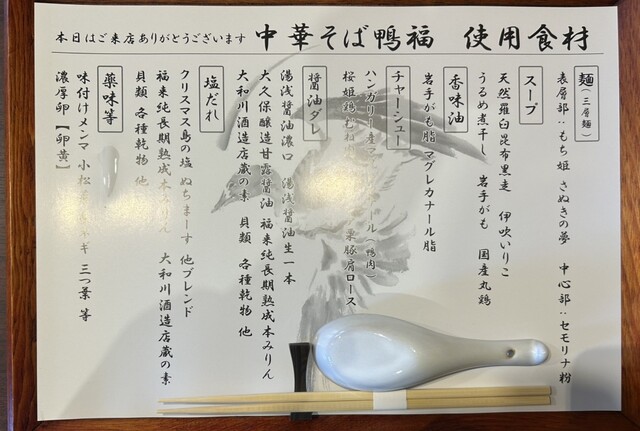 本日はご来店ありがとうございます
中華そば鴨福 使用食材
麺(三層麺)
表層部:もち姫 さぬきの夢 中心部:セモリナ粉
スープ
天然羅臼昆布黒走 伊吹いりこ
うるめ煮干し 岩手がも 国産丸鶏
香味油
岩手がも脂 マグレカナール脂
チャーシュー
ハンガリー産マグレカナール(鴨肉)
桜姫鶏むね 栗豚肩ロース
醤油ダレ
湯浅醤油濃口 湯浅醤油生一本
大久保醸造甘露醤油 福来純長期熟成本みりん
大和川酒造店蔵の素 貝類 各種乾物 他
塩だれ
クリスマス島の塩 ぬちまーす 他ブレンド
福来純長期熟成本みりん 大和川酒造店蔵の素
貝類 各種乾物 他
薬味等
味付けメンマ 小松 ネギ 三つ葉 等
濃厚卵【卵黄】